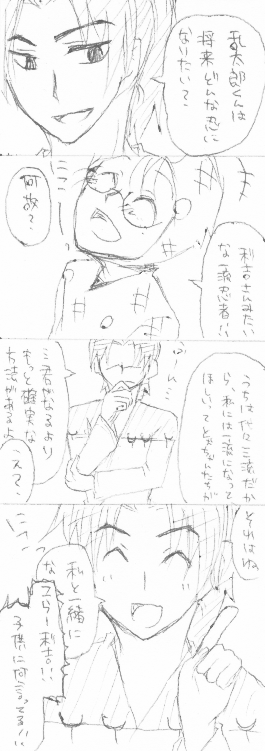 乱太郎くんは
将来どんな忍に
なりたい？
利吉さんみたい
な一流忍者!!
何故？
うちは代々三流だか
ら、私には一流になって
ほしいって父ちゃんたちが
う〜ん…
君がなるより
もっと確実な
方法があるよ
え？
それはね
私と一緒に
な
コラー利吉!!
子供に何言ってる!!